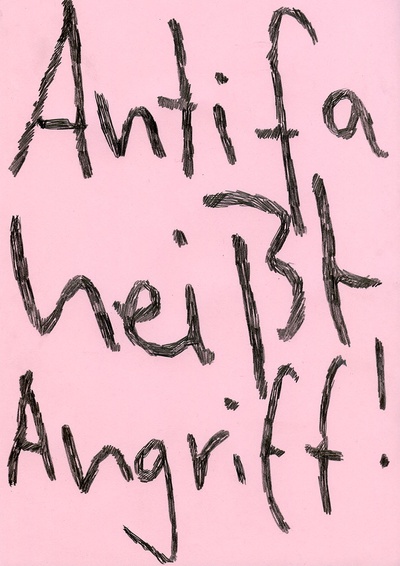 Antifa
heißt
Angriff!